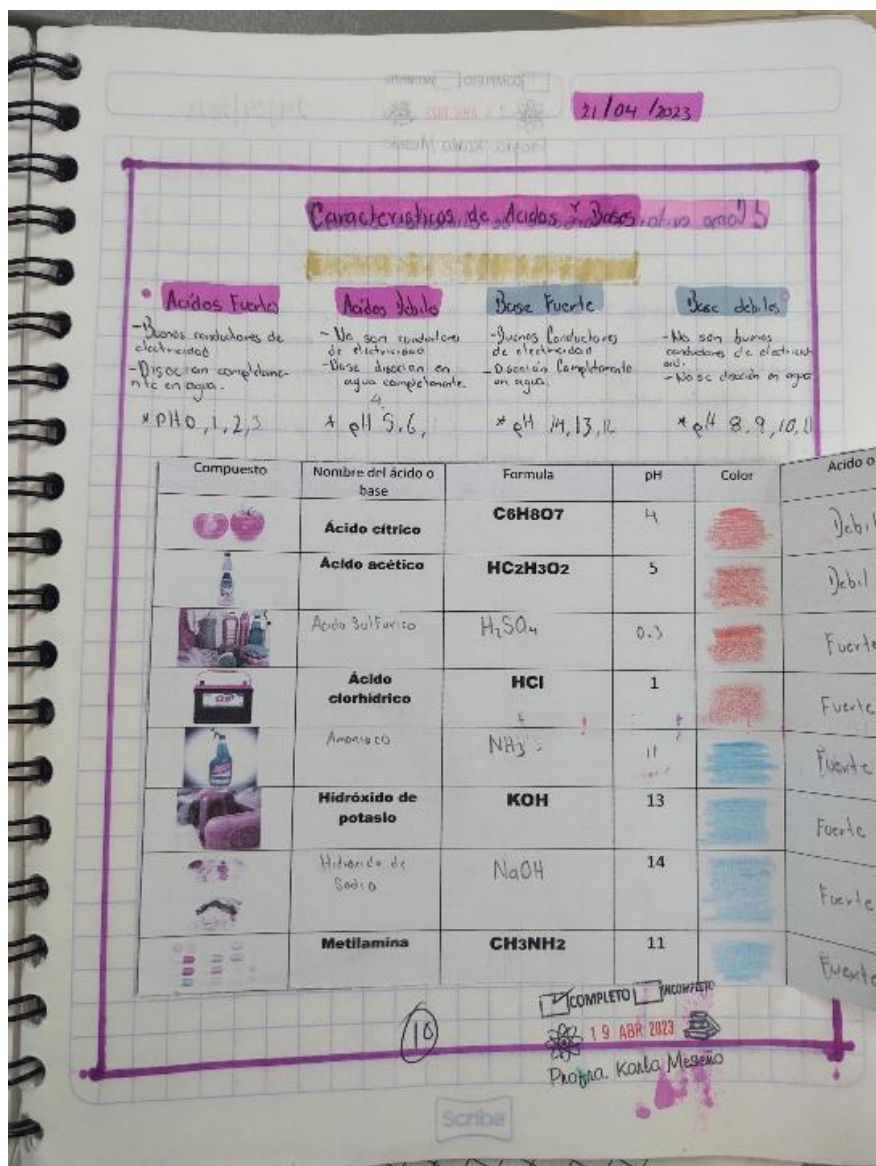 21/04/2023
Caracteristicas de Acidos Y Bases
Acidos Fuertes
-Buenos conductores de
electricidad
-Disocian completame-
nte en agua.
* pH 0, 1, 2, 3
Acidos Debiles
- No son conductores
de electricidad
- disocian en
agua completamente.
4
* pH 5, 6,
Base Fuerte
-Buenos Conductores
de electricidad
-Disocian Completamente
en agua.
* pH 14, 13, 12
Base debiles
-No son buenos
conductores de electricid
ad.
- No se disocian en agua
* pH 8, 9, 10, 11
Compuesto Nombre del ácido o Formula pH Color Acido o
base
Ácido cítrico C6H8O7 4 Debil
Ácido acético HC2H3O2 5 Debil
Acido Sulfurico H2SO4 0.3 Fuerte
Ácido HCl 1 Fuerte
clorhídrico
Amoniaco NH3 11 Fuerte
Hidróxido de KOH 13 Fuerte
potasio
Hidroxido de NaOH 14 Fuerte
Sodio
Metilamina CH3NH2 11 Fuerte
10
COMPLETO INCOMPLETO
19 ABR 2023
Profra. Karla Meseño
Scribe